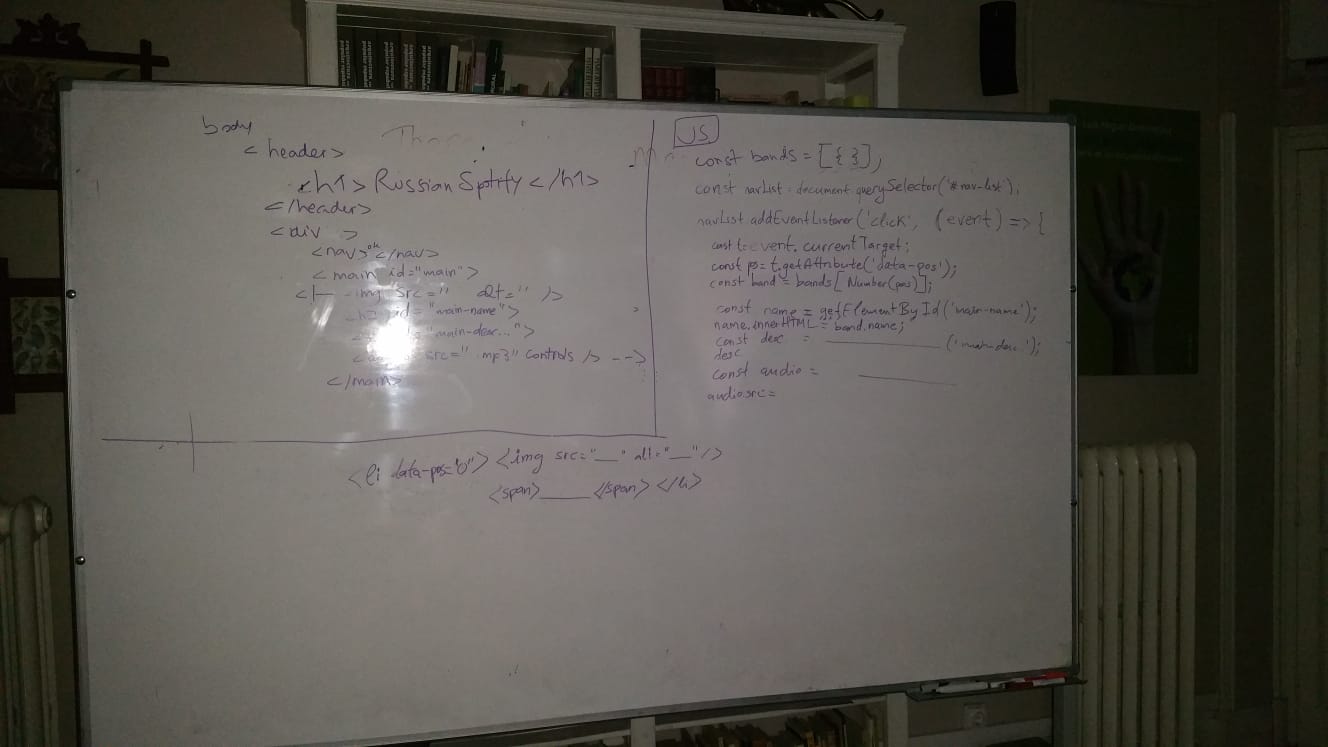 body
<header>
<h1> Russian Spotify </h1>
</header>
<div >
<nav> </nav>
<main id="main">
<!-- img src=" alt=" />
id="main-name">
="main-desc...">
src=" .mp3" controls /> -->
</main>
JS
const bands = [{ }],
const navList = document.querySelector('#nav-list'),
navList addEventListener('click', (event) => {
const t = event.currentTarget;
const pos = t.getAttribute('data-pos');
const band = bands[Number(pos)];
const name = getElementById('main-name');
name.innerHTML = band.name;
const desc = ______ ('main-desc.');
desc
const audio = ______
audio.src=
<li data-pos="0"> <img src="__" alt="__" />
<span>____</span> </li>